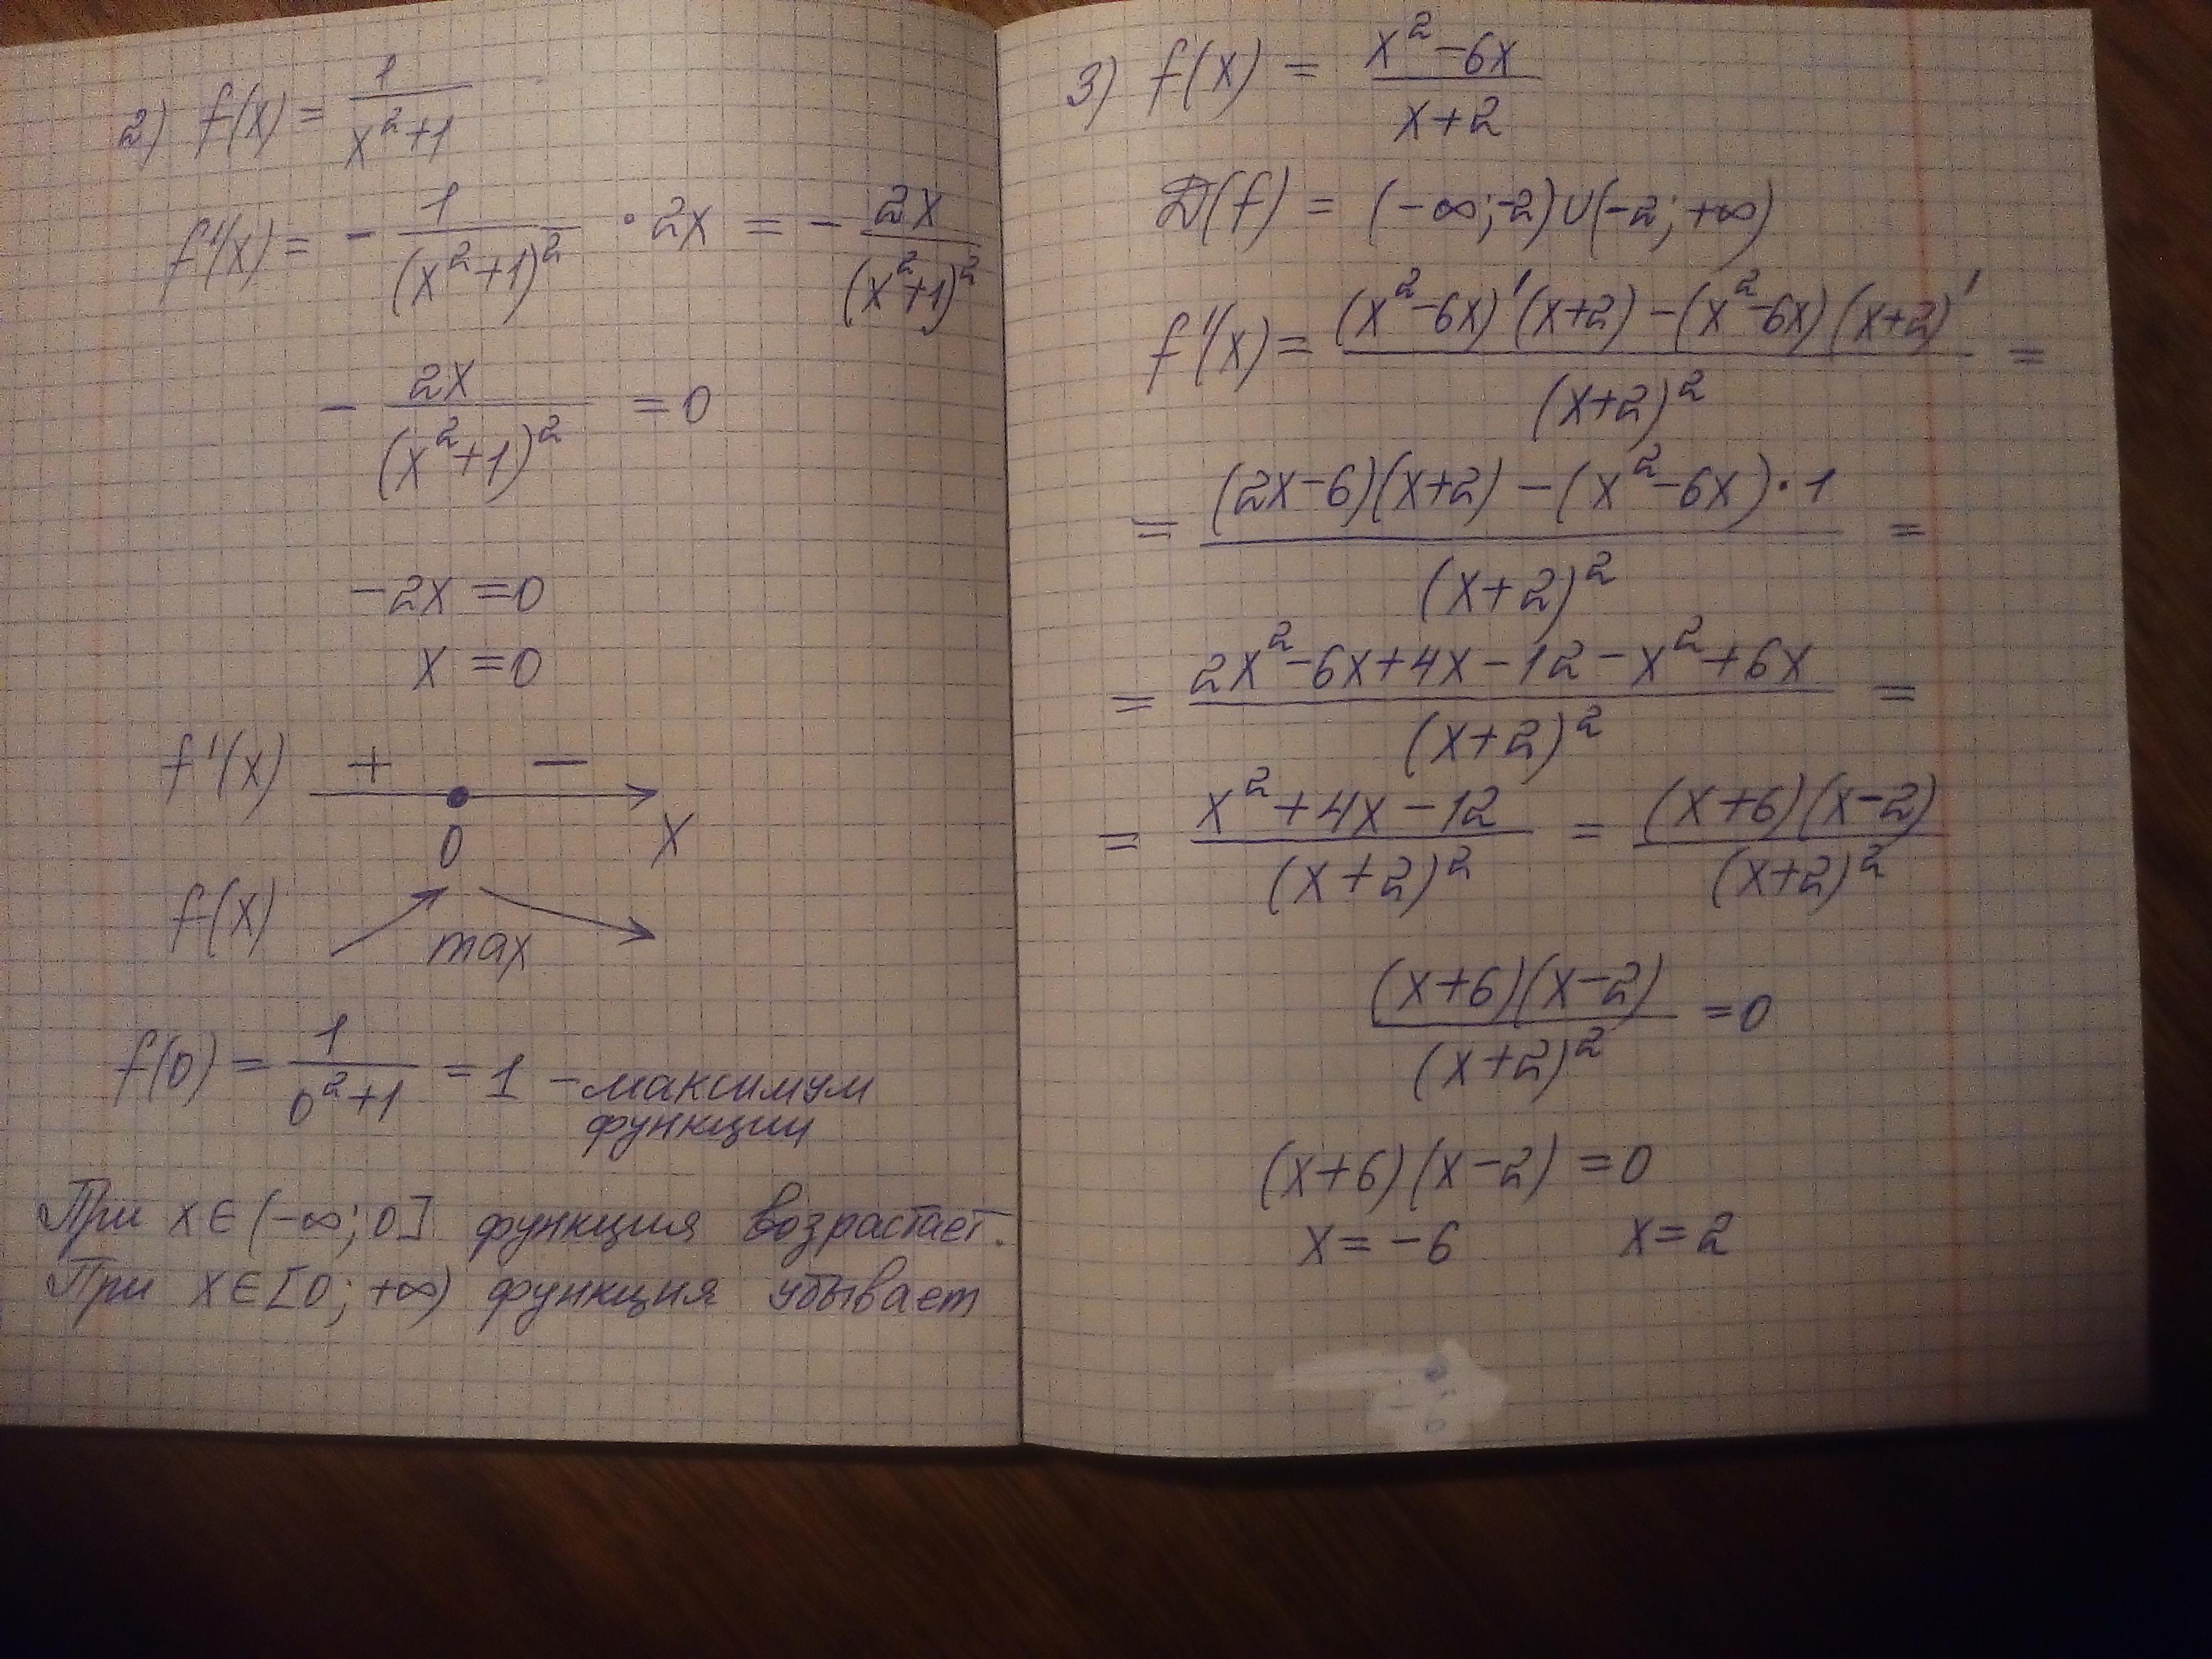 2) f(x) = 1/(x²+1)
f'(x) = - 1/(x²+1)² · 2x = - 2x/(x²+1)²
- 2x/(x²+1)² = 0
-2x = 0
x = 0
f'(x) + −
0 x
f(x) max
f(0) = 1/(0²+1) = 1 - максимум
функции
При x∈(-∞; 0] функция возрастает.
При x∈[0; +∞) функция убывает
3) f(x) = (x²-6x)/(x+2)
D(f) = (-∞; -2)∪(-2; +∞)
f'(x) = ((x²-6x)'(x+2) - (x²-6x)(x+2)')/(x+2)² =
= ((2x-6)(x+2) - (x²-6x)·1)/(x+2)² =
= (2x²-6x+4x-12-x²+6x)/(x+2)² =
= (x²+4x-12)/(x+2)² = (x+6)(x-2)/(x+2)²
(x+6)(x-2)/(x+2)² = 0
(x+6)(x-2) = 0
x = -6 x = 2